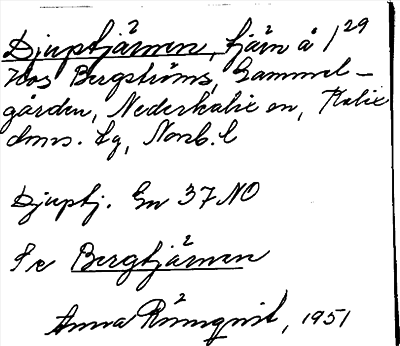 Djuptjärnen, tjärn å 1²⁹
hos Bergströms, Gammel-
gården, Nederkalix sn, Kalix
dms. tg, Norrb. l
Djuptj. Gn 37 NO
Se Bergtjärnen
Anna Rönnqvist, 1951